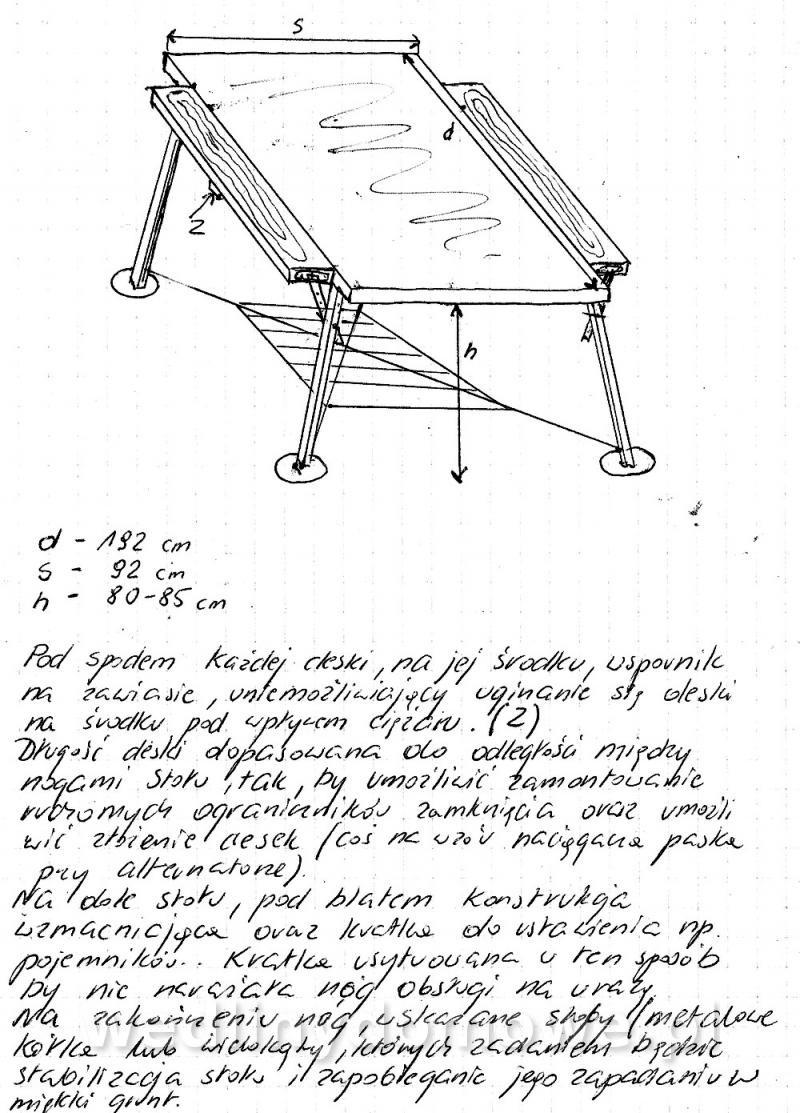 s
d
Z
h
d - 192 cm
s - 92 cm
h - 80-85 cm
Pod spodem każdej deski, na jej środku, wspornik
na zawiasie, uniemożliwiający uginanie się deski
na środku pod wpływem ciężaru. (Z)
Długość deski dopasowana do odległości między
nogami stołu, tak, by umożliwić zamontowanie
ruchomych ograniczników zamknięcia oraz umożli
wić złożenie desek (coś na wzór naciągacza paska
przy alternatorze).
Na dole stołu, pod blatem konstrukcja
wzmacniająca oraz kratka do ustawienia np.
pojemników.. Kratka usytuowana w ten sposób
by nie narażała nóg obsługi na urazy.
Na zakończeniu nóg wskazane stopy (metalowe
kółka lub widokąty, których zadaniem będzie
stabilizacja stołu i zapobieganie jego zapadaniu w
miękki grunt.
wedlinydomowe.pl